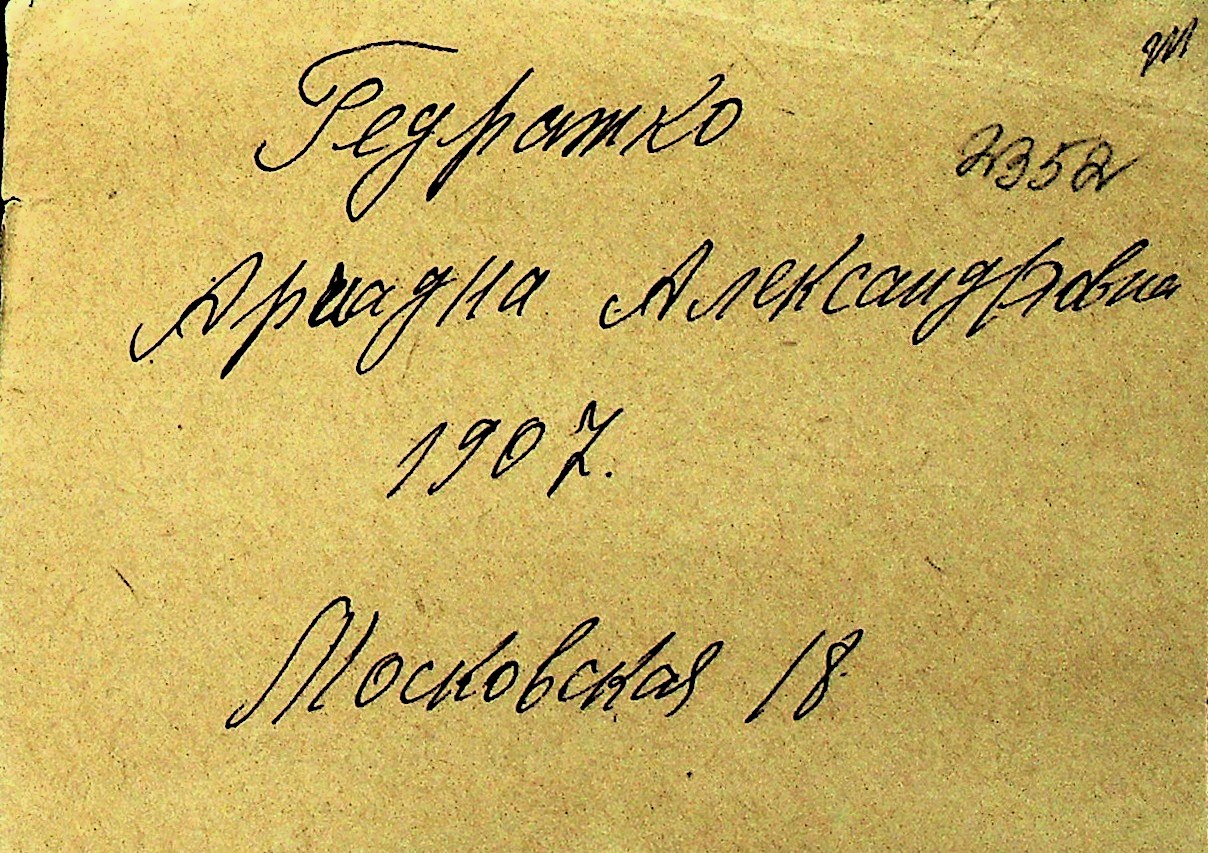 2352
Гедратко
Ариадна Александровна
1907.
Московская 18